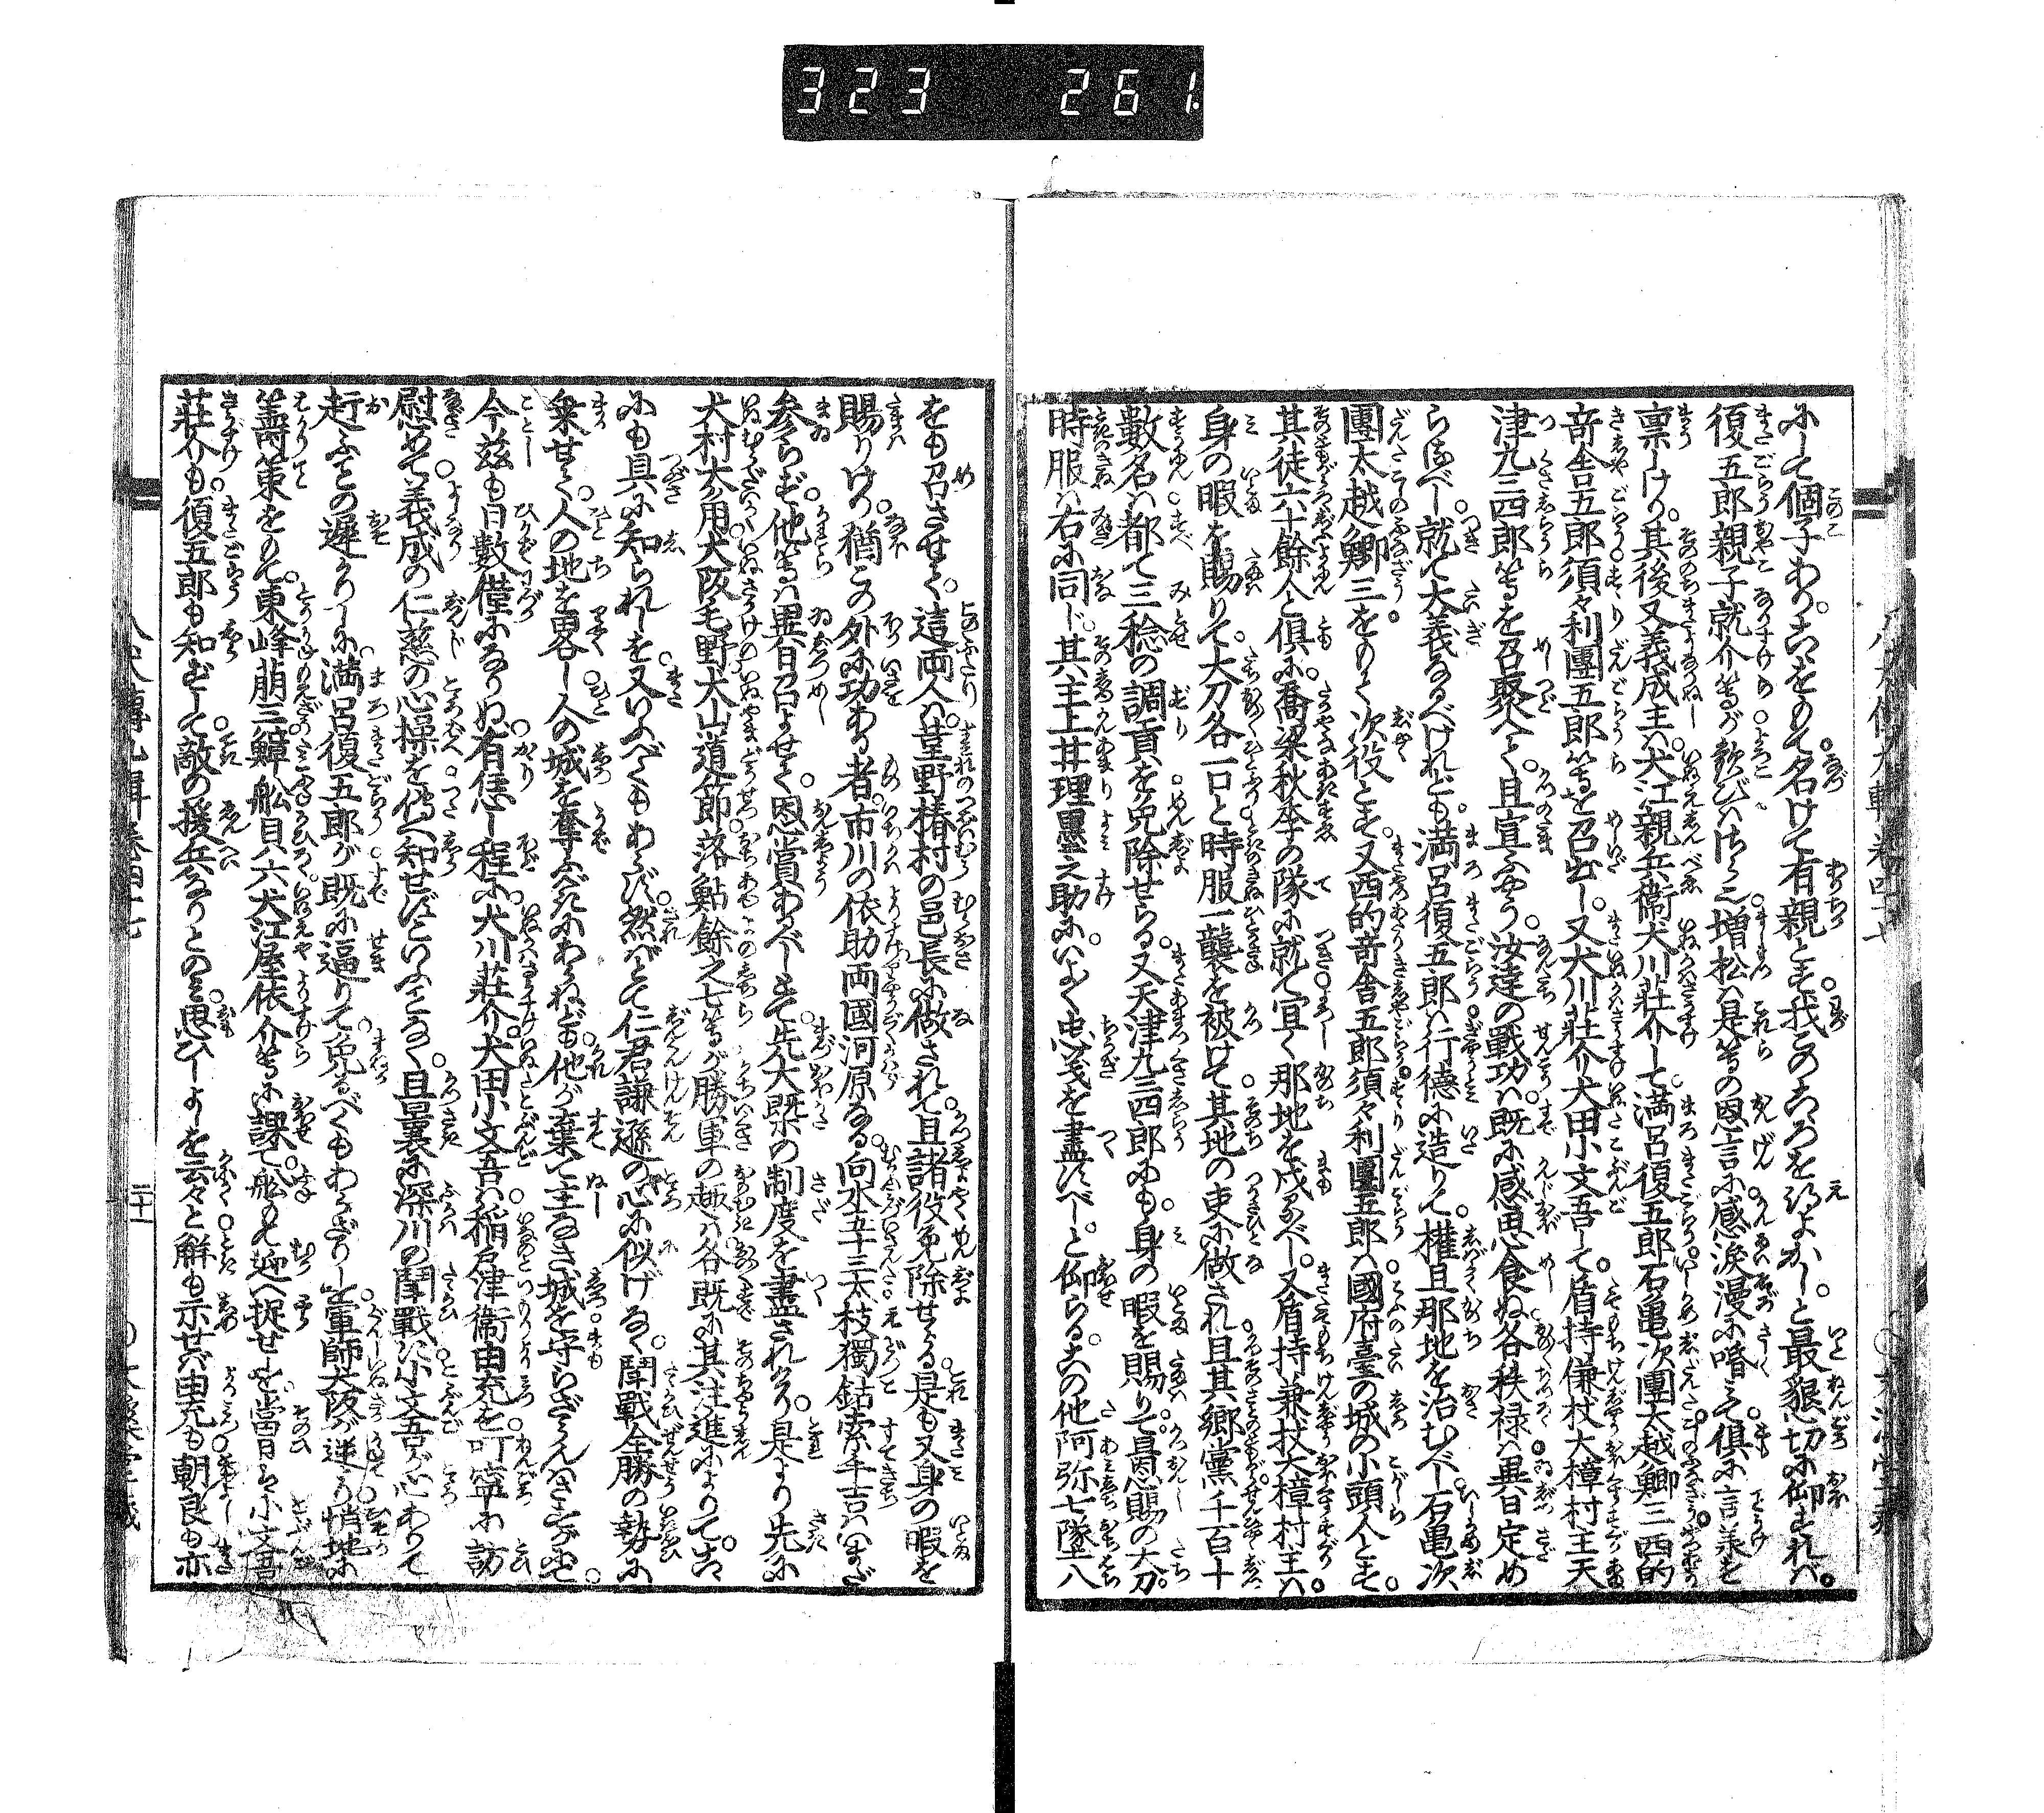 323 261
にして個子あり。なをもて名けて有親とす。我このこゝろを得よかし。と最懇切に仰すれバ。
復五郎親子就介等が歓びハさら也増松ハ是等の恩言に感涙漫に喑ミて倶に言承を
禀しけり。其後又義成主ハ犬江親兵衛犬川荘介して満呂復五郎石亀次團太越鯽三西的
竒舎五郎須々利團五郎等を召出し。又犬川荘介犬田小文吾して盾持傔杖大樟村主天
津九三四郎等を召聚へて。且宣ふやう。汝達の戦功ハ既に感思食ぬ各秩禄ハ異日定め
らるべし。就て大義なるべけれども。満呂復五郎ハ行徳に造りて。權且那地を治むべし石亀次
團太越鯽三をもて次役とす。又西的竒舎五郎須々利團五郎ハ國府臺の城の小頭人とす。
其徒六十餘人と倶に。喬梁秋季の隊に就て宜く那地を戍るべし。又盾持兼杖大樟村主ハ。
身の暇を賜りて。大刀各一口と時服一襲を被けて其地の吏に做され且其郷黨千百十
數名ハ都て三稔の調貢を免除せらる。又天津九三四郎にも。身の暇を賜りて。恩賜の大刀。
時服ハ右に同じ。其主上井理墨之助に。いよゝ忠義を盡すべし。と仰らる。この他阿弥七墜八
をも召させて。這両人ハ。菫野椿村の邑長に做されて。且諸役免除せらる是も又身の暇を
賜りけり。猶この外に功ある者。市川の依助両國河原なる。向水五十三太枝獨鈷素手吉ハいまだ
参らず。他等ハ異日召よせて。恩賞あるべしとて。先大概の制度を盡されけり。是より先に
犬村大角犬阪毛野犬山道節落鮎餘之七等が勝軍の趣ハ各既に其注進によりて。こゝ
にも具に知られしを。又いふべくもあらず。然バとて仁君謙遜の心に似げなく。鬪戰全勝の勢に
乗せて。人の地を畧し人の城を奪ふべきにあらねども。他が棄て主なき城を守らざらんハさすがにて。
今茲も日數僅になりぬ。有恁し程に。犬川荘介。犬田小文吾ハ稲戸津衛由充を叮寧に訪
慰めて。義成の仁慈の心操を傳へ知せずといふことなく。且曩に深川の鬪戰に小文吾が心ありて
赶ふことの遲かりしに。満呂復五郎が既に逼りて免るべくもあらざりしを。軍師犬阪が逆より悄地に
籌策をもて。東峰萠三鱆舩貝六犬江屋依介等に課て。舩もて迎へ捉せしを。當日は小文吾
荘介も。復五郎も知ずして。敵の援兵なりとのミ。思ひしよしを云々と解も示せバ由充も朝良も亦
二十一